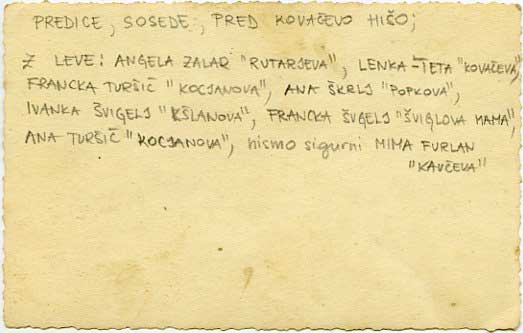 PREDICE, SOSEDE, PRED KOVAČEVO HIŠO;
Z LEVE: ANGELA ZALAR "RUTARJEVA", LENKA-TETA "KOVAČEVA",
FRANCKA TURŠIČ "KOCJANOVA", ANA ŠKRLJ "POPKOVA",
IVANKA ŠVIGELJ "KŠLANOVA", FRANCKA ŠVGELJ "ŠVIGLOVA MAMA",
ANA TURŠIČ "KOCJANOVA", nismo sigurni MIMA FURLAN
"KAVČEVA"